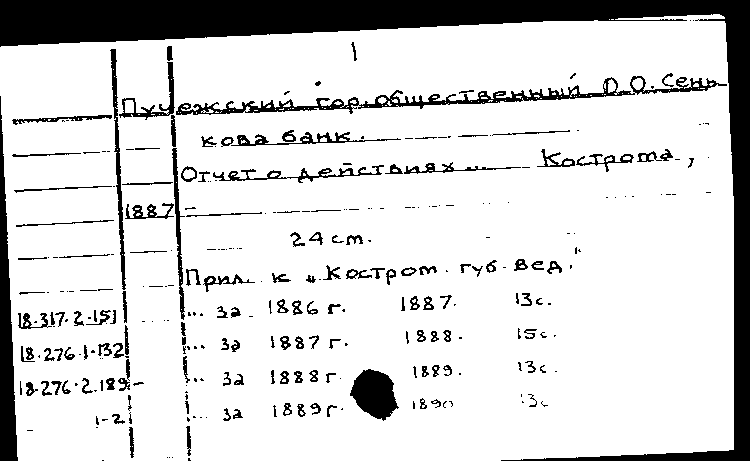 1
Пучежский гор. общественный Д.О. Сень-
кова банк.
Отчет о действиях... Кострома,
1887 -
24 cm.
Прил. к „Костром. губ. вед."
18.317.2.151 ... за 1886 г. 1887. 13 с.
18.276.1.132 ... за 1887 г. 1888. 15 с.
18.276.2.189 - ... за 1888 г. 1889. 13 с.
1-2 ... за 1889 г. 1890 13 с